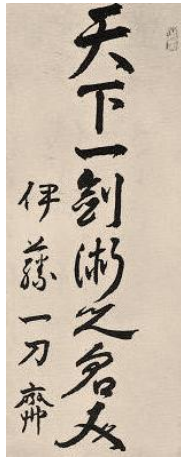 天下一劍術之名人
伊藤一刀齋